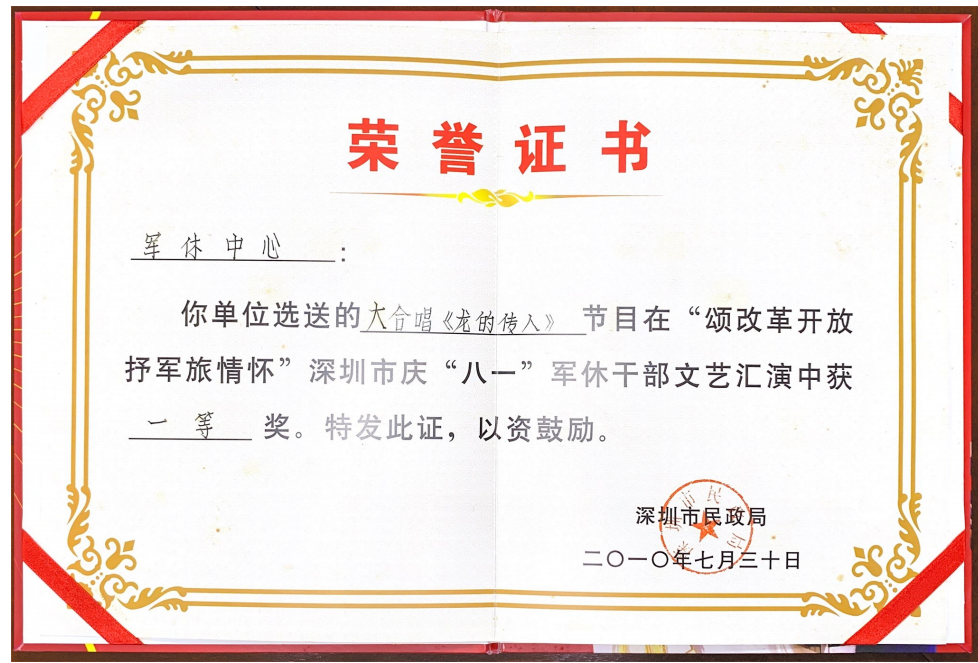 荣誉证书
军休中心：
你单位选送的大合唱《龙的传人》节目在“颂改革开放
抒军旅情怀”深圳市庆“八一”军休干部文艺汇演中获
一等奖。特发此证，以资鼓励。
深圳市民政局
深圳市民政局
二〇一〇年七月三十日